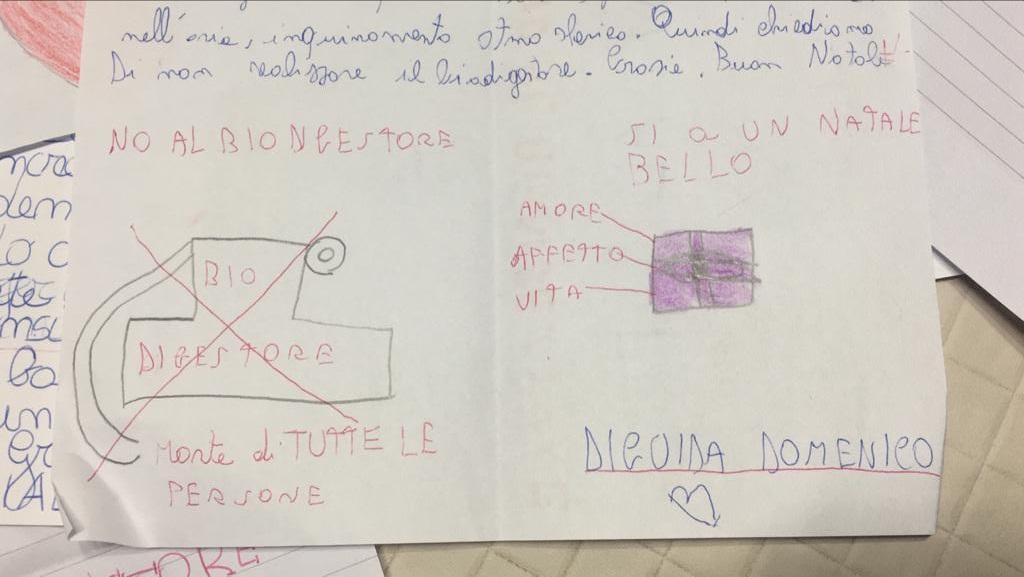 nell'aria, inquinamento atmosferico. Quindi chiediamo
Di non realizzare il biodigestore. Grazie. Buon Natale
NO AL BIO NGESTORE
SI a UN NATALE
BELLO
AMORE
AFFETTO
VITA
BIO
DIGESTORE
Morte di TUTTE LE
PERSONE
DIGUIDA DOMENICO
ncra
den
LO C
msl
Ba
un
ORE